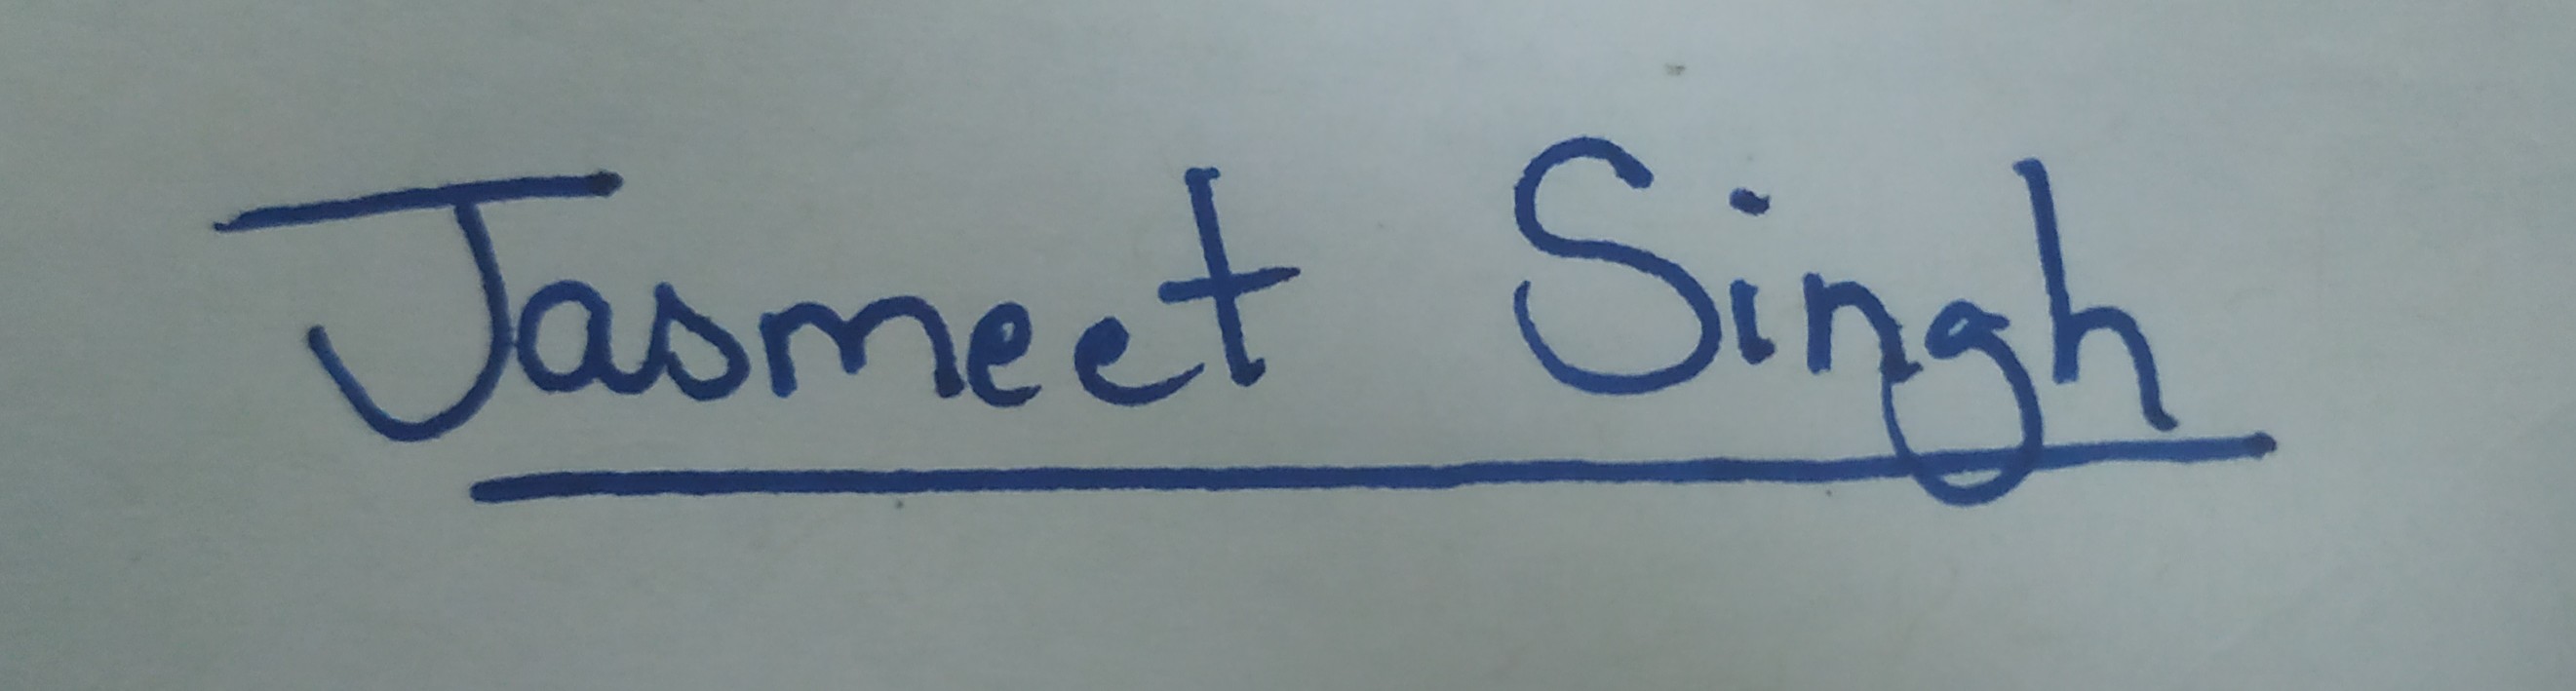 Jasmeet Singh